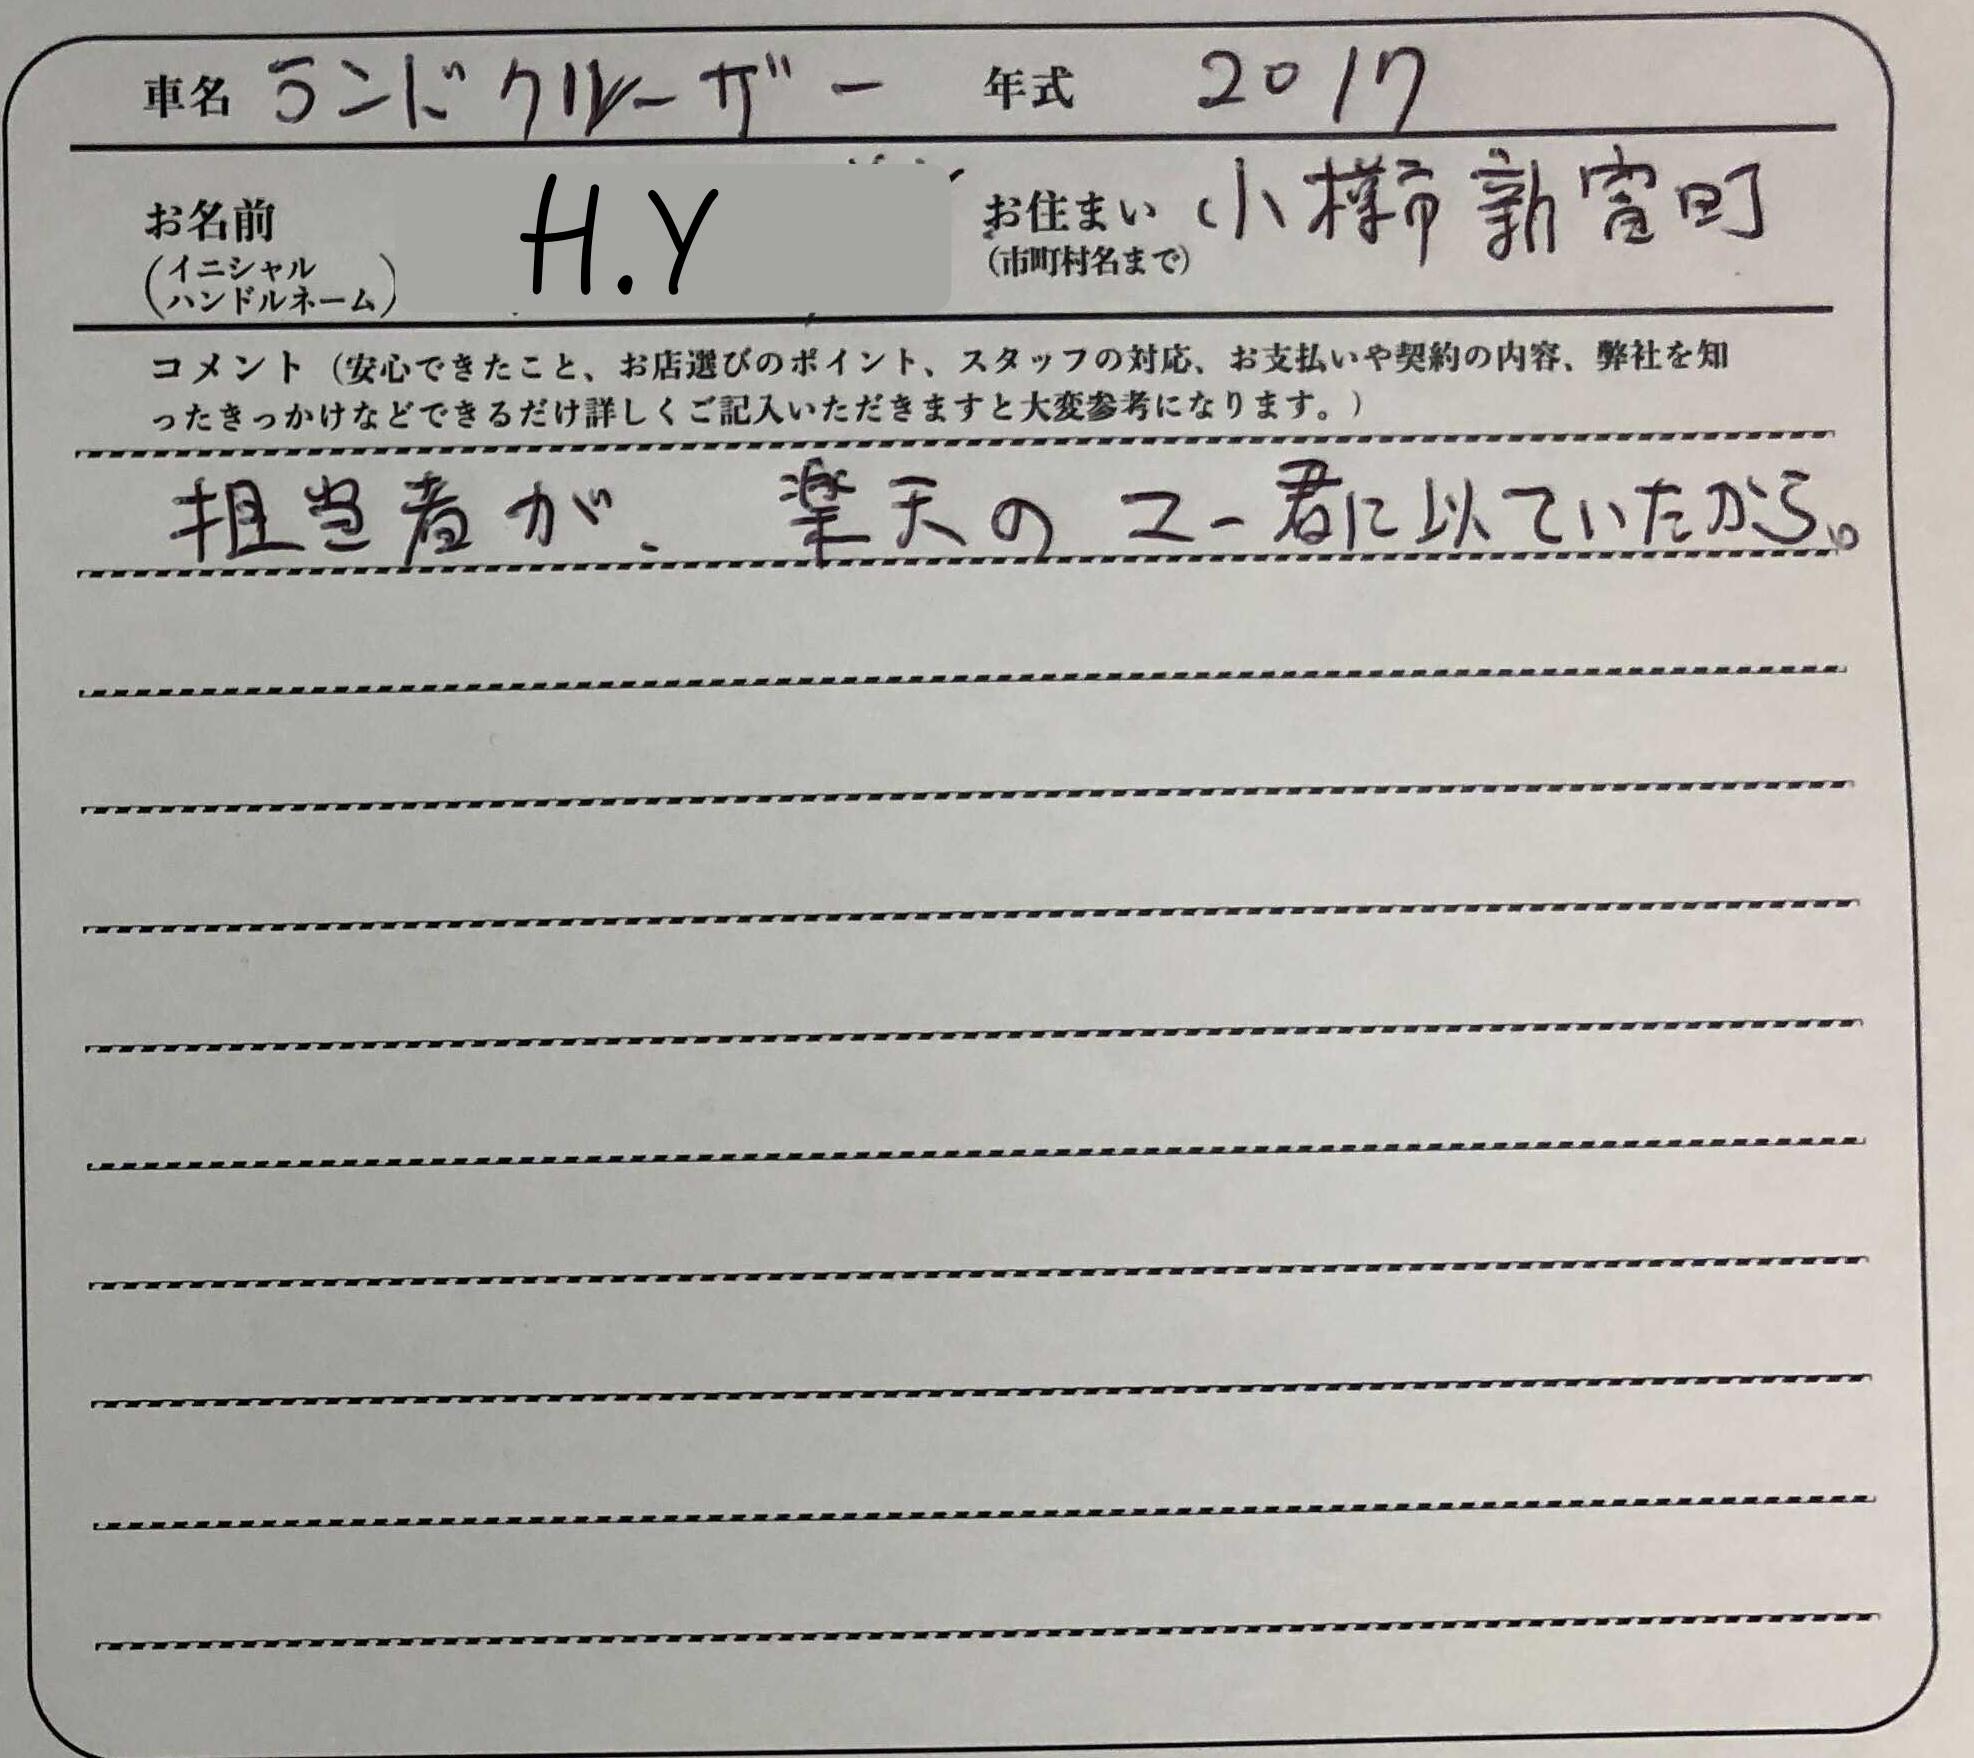 車名 ランドクルーザー 年式 2017
お名前 (イニシャル ハンドルネーム) H.Y お住まい (市町村名まで) 小樽市新富町
コメント（安心できたこと、お店選びのポイント、スタッフの対応、お支払いや契約の内容、弊社を知
ったきっかけなどできるだけ詳しくご記入いただきますと大変参考になります。）
担当者が、楽天のユー君に似ていたから。